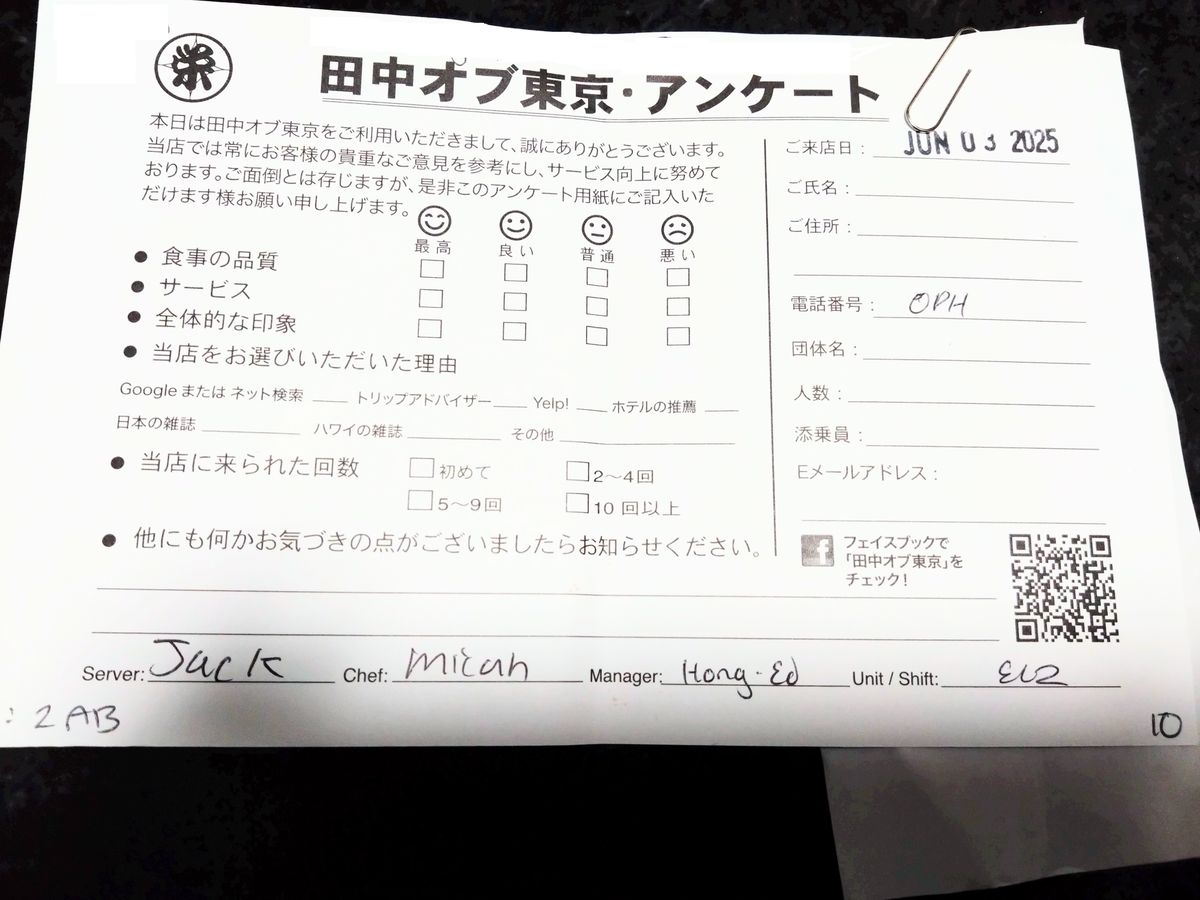 栄
田中オブ東京・アンケート
本日は田中オブ東京をご利用いただきまして、誠にありがとうございます。
当店では常にお客様の貴重なご意見を参考にし、サービス向上に努めて
おります。ご面倒とは存じますが、是非このアンケート用紙にご記入いた
だけます様お願い申し上げます。
最高 良い 普通 悪い
● 食事の品質
● サービス
● 全体的な印象
● 当店をお選びいただいた理由
Google または ネット検索 トリップアドバイザー Yelp! ホテルの推薦
日本の雑誌 ハワイの雑誌 その他
● 当店に来られた回数 初めて 2〜4回
5〜9回 10 回以上
● 他にも何かお気づきの点がございましたらお知らせください。
ご来店日: JUN 03 2025
ご氏名:
ご住所:
電話番号: OPH
団体名:
人数:
添乗員:
Eメールアドレス:
f フェイスブックで
「田中オブ東京」を
チェック!
Server: Jack Chef: Micah Manager: Hong-Ed Unit / Shift:
: 2AB 10